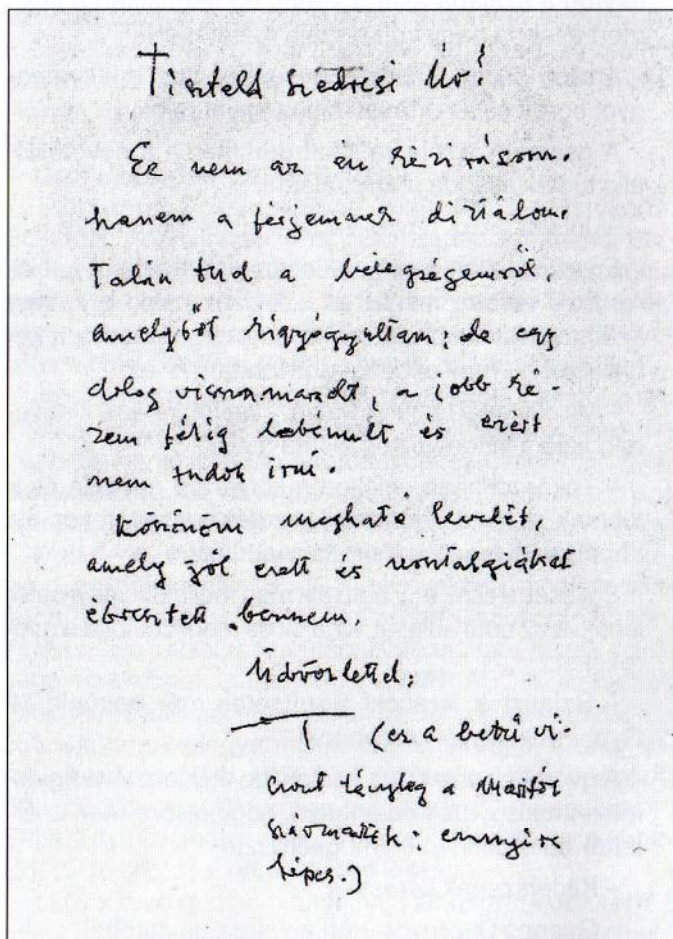 Tisztelt Szedresi Úr!
Ez nem az én kézírásom,
hanem a férjemnek diktálom.
Talán tud a betegségemről,
amelyből kigyógyultam, de egy
dolog visszamaradt, a jobb ke-
zem félig lebénult és ezért
nem tudok írni.
Köszönöm megható levelét,
amely jól esett és nosztalgiákat
ébresztett bennem.
Üdvözlettel:
(ez a betű vi-
szont tényleg a
származik: ennyire
képes.)